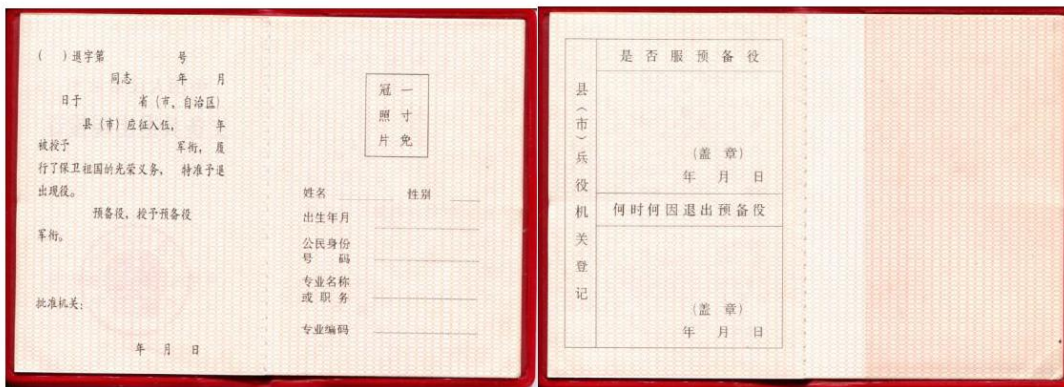 ( )退字第 号
同志 年 月
日于 省(市、自治区)
县(市)应征入伍, 年
被授予 军衔, 履
行了保卫祖国的光荣义务, 特准予退
出现役。
预备役,授予预备役
军衔。
批准机关:
年 月 日
冠 一
照 寸
片 免
姓名 性别
出生年月
公民身份
号 码
专业名称
或 职 务
专业编码
县(市)兵役机关登记
是 否 服 预 备 役
(盖 章)
年 月 日
何时何因退出预备役
(盖 章)
年 月 日